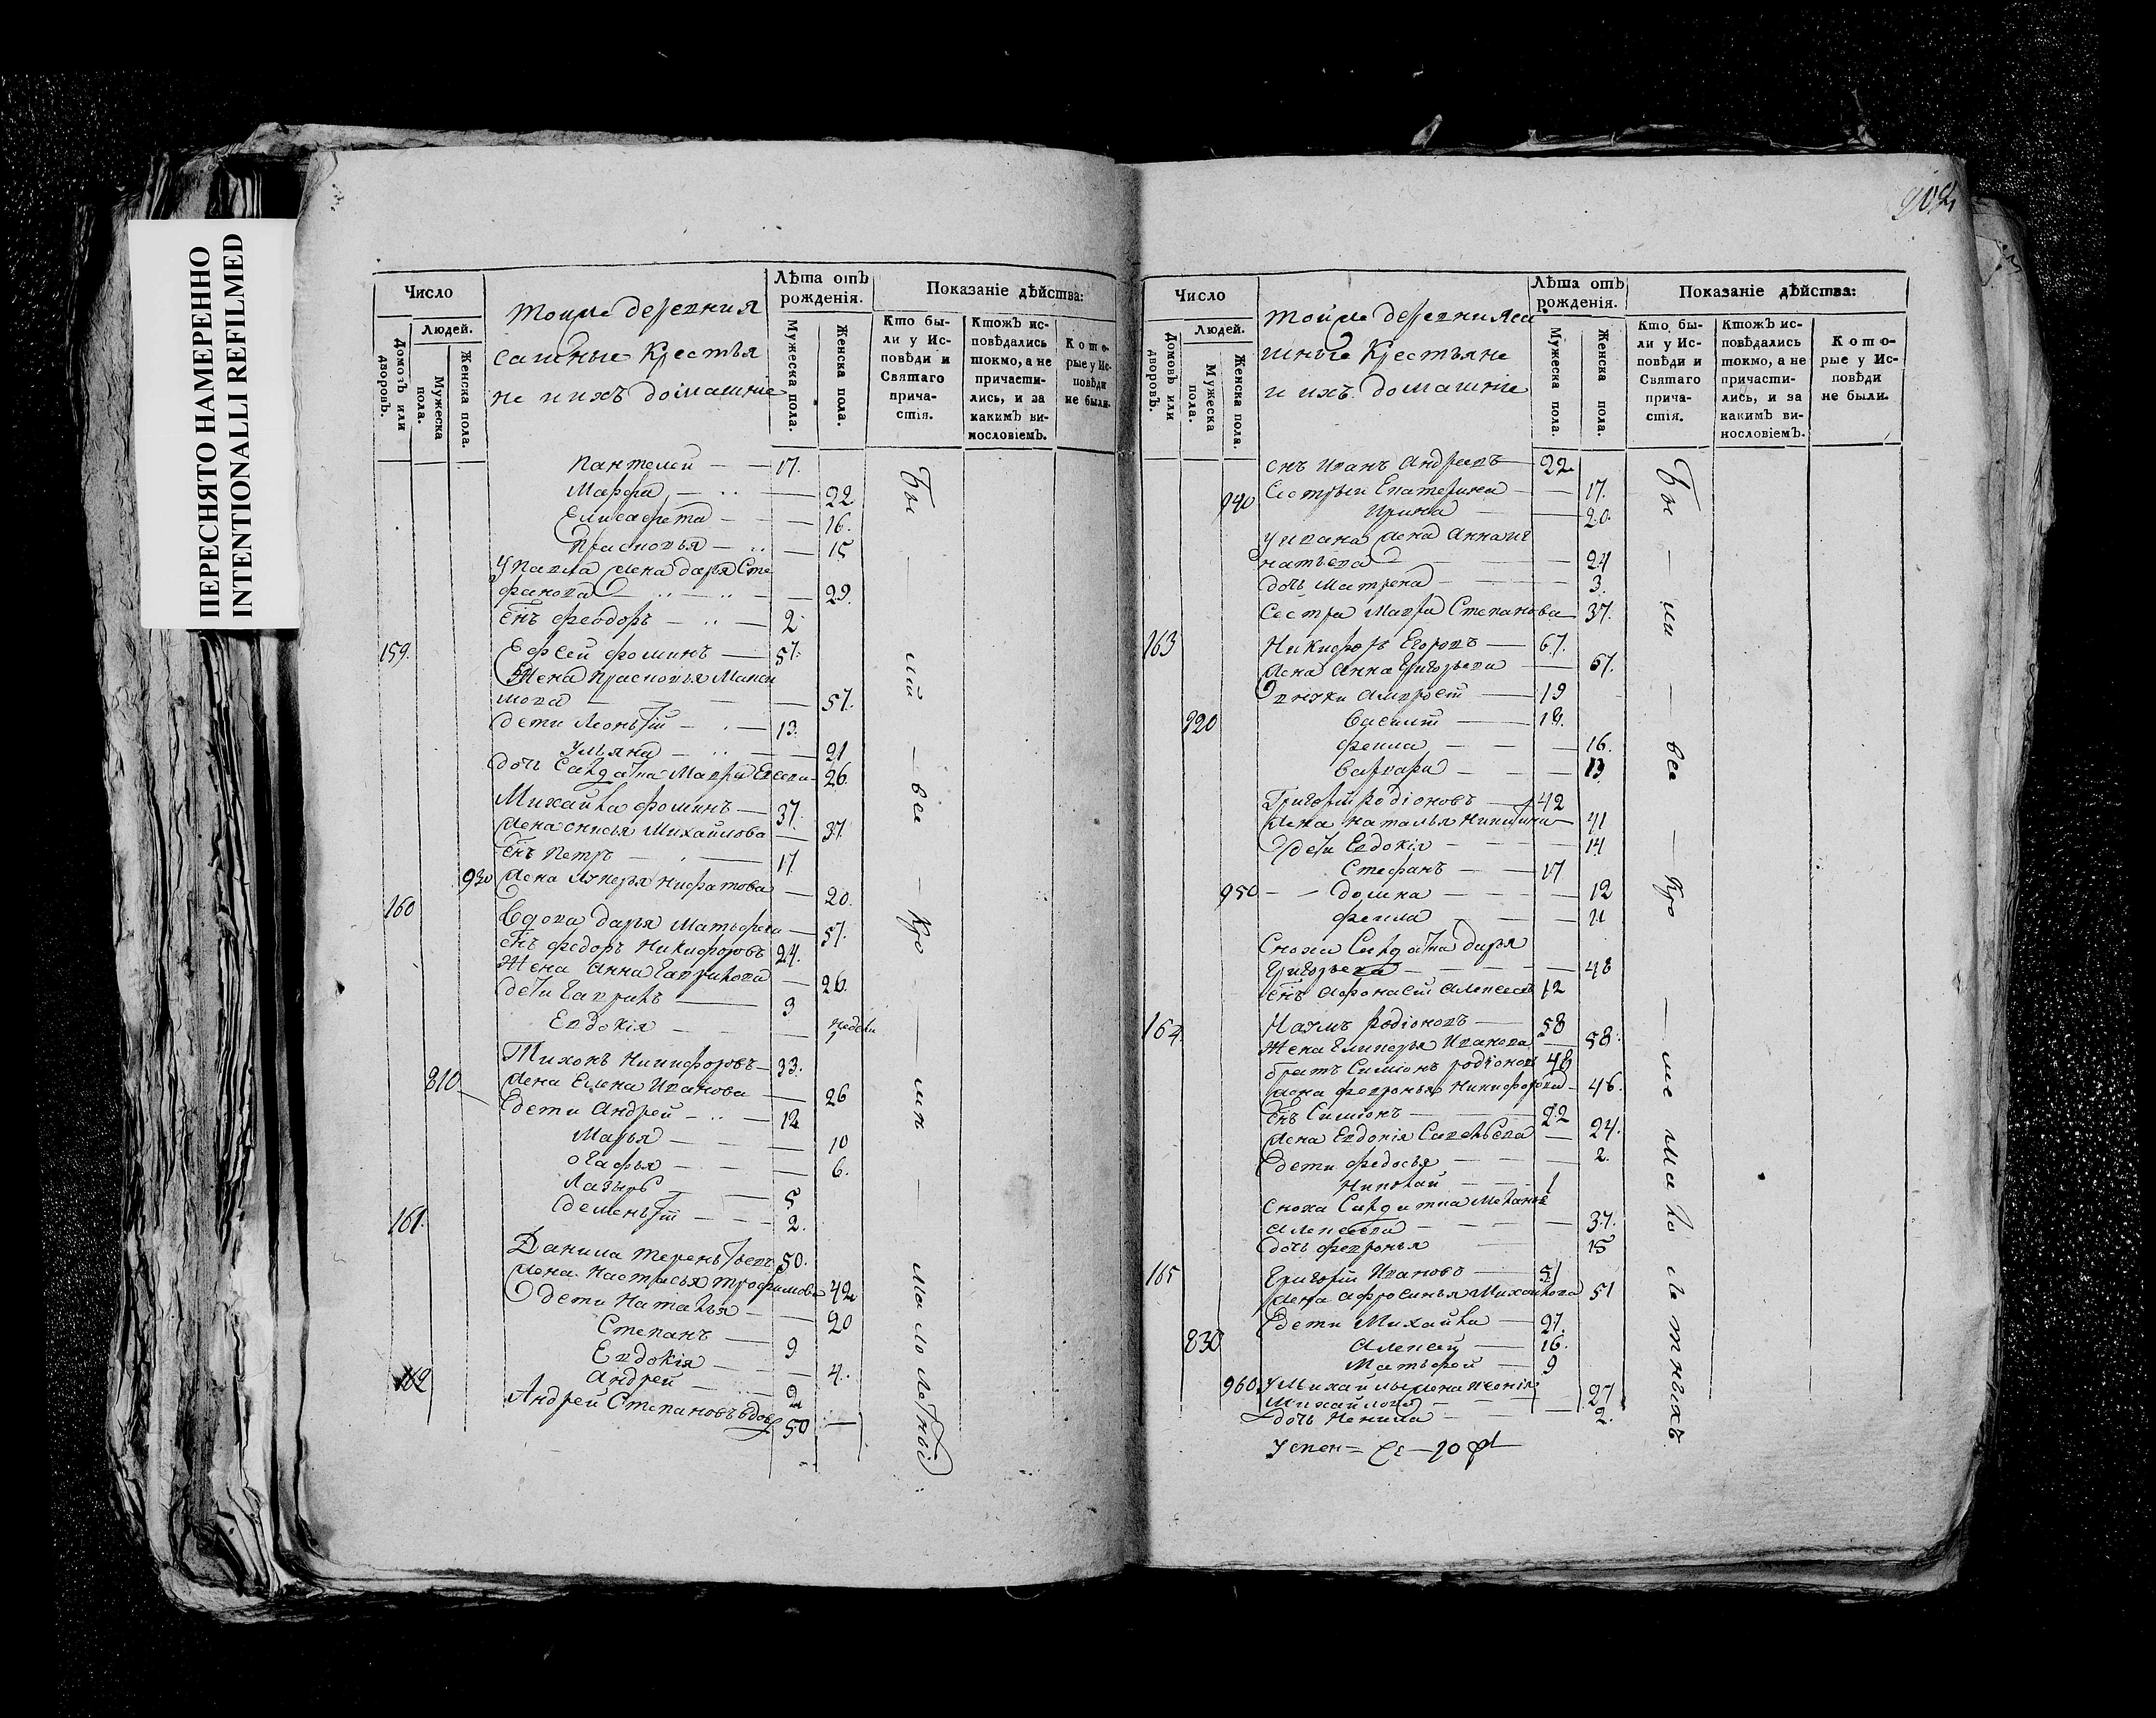 ПЕРЕСНЯТО НАМЕРЕННО
INTENTIONALLI REFILMED
Число
Людей.
Домовъ или дворовъ.
Мужеска пола.
Женска пола.
тойже деревни
сашные Крестья
не и ихъ домашніе
Лѣта отъ рожденія.
Мужеска пола.
Женска пола.
Показаніе дѣйства:
Кто бы-
ли у Ис-
повѣди и
Святаго
прича-
стія.
Ктожъ ис-
повѣдались
токмо, а не
причасти-
лись, и за
какимъ ви-
нословіемъ.
Кото-
рые у Ис-
повѣди
не были.
Пантелей 17.
Марфа 22
Елисавета 16.
Прасковья 15
У Павла жена дарья Сте
фанова 29.
Снъ феодоръ 2
159. Евсей фоминъ 57.
Жена Прасковья Макси
мова 57.
дети Леонтій 13.
Ульяна 21
дочь Салдатка Мавра Евсева 26
Михайла фоминъ 37.
жена Михайлова 37
Снъ Петръ 17
930 жена 20.
160 Вдова дарья Матвеева 57.
Снъ федоръ Никифоровъ 24.
Жена Анна Гаврилова 26.
дети Гаврилъ 3
Евдокія недели
Тихонъ Никифоровъ 33.
810 жена Елена Иванова 26
дети Андрей 12
Марья 10
огафья 6.
Лазырь 5
дементій 2.
161. Данила терентьевъ 50.
жена Настасья трофимова 42
дети Наталья 20
Степанъ 9
Евдокія 4.
Андрей 2
162 Андрей Степановъ вдовъ 50
Бы ли все Кро мѣ мо ло летныѣ
Число
Людей.
Домовъ или дворовъ.
Мужеска пола.
Женска пола.
тойже деревни
шные Крестьяне
и ихъ домашніе
Лѣта отъ рожденія.
Мужеска пола.
Женска пола.
Показаніе дѣйства:
Кто бы-
ли у Ис-
повѣди и
Святаго
прича-
стія.
Ктожъ ис-
повѣдались
токмо, а не
причасти-
лись, и за
какимъ ви-
нословіемъ.
Кото-
рые у Ис-
повѣди
не были.
снъ Иванъ Андреевъ 22
940 Сестры Екатерина 17.
Ирина 20.
У ивана жена Анна иг
натьева 24
дочь Матрена 3.
Сестра Мавра Степанова 37.
163 Никифоръ Егоровъ 67.
жена Анна Григорьева 67.
внуки 19
820 Василій 18.
фекла 16.
Варвара 13
Григорій родіоновъ 42
жена наталья Никитина 41
дети Евдокія 14
Стефанъ 17
950 домна 12
фекла 11
Сноха Салдатка дарья
Григорьева 48
снъ Афонасій алексеевъ 12
164 Наумъ родіоновъ 58
Жена Гликерья Иванова 58.
братъ Симіонъ родіоновъ 48
жена февронья Никифорова 46.
Снъ Симіонъ 22
жена Евдокія Савельева 24.
дети федосья 2.
Николай 1
Сноха Салдатка
алексеева 37.
дочь февронья 15
165 Григорій Ивановъ 51
жена Афросинья Михайлова 51
дети Михайла 27.
830 Алексей 16.
Матвей 9
960 У Михайлы жена Ксенія
Михайлова 27
дочь Ненила 2.
Бы ли все Кро ме мало летныхъ